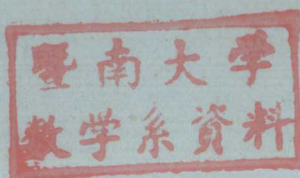 暨南大学
数学系資料